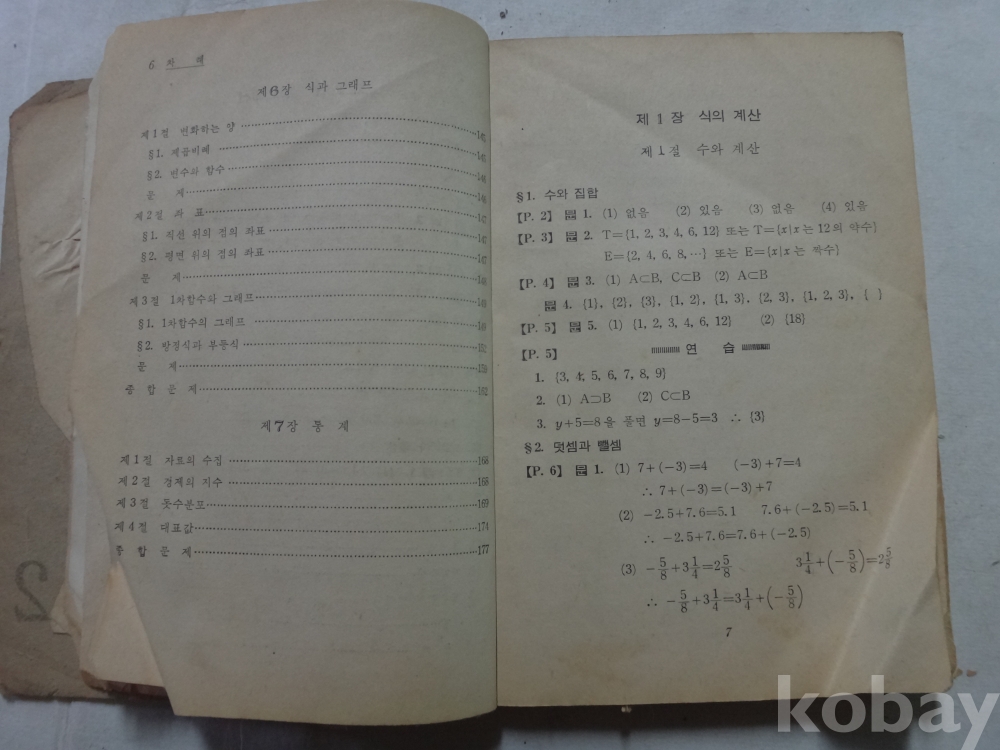 6 차 례
제6장 식과 그래프
제1절 변화하는 양
§1. 제곱비례
§2. 변수와 함수
문 제
제2절 좌 표 147
§1. 직선 위의 점의 좌표 147
§2. 평면 위의 점의 좌표 147
문 제
제3절 1차함수와 그래프 149
§1. 1차함수의 그래프 149
§2. 방정식과 부등식 152
문 제 159
종 합 문 제 162
제7장 통 계
제1절 자료의 수집 168
제2절 경제의 지수 168
제3절 돗수분포 169
제4절 대표값 174
종 합 문 제 177
제 1 장 식의 계산
제 1 절 수와 계산
§1. 수와 집합
【P. 2】 문 1. (1) 없음 (2) 있음 (3) 없음 (4) 있음
【P. 3】 문 2. T={1, 2, 3, 4, 6, 12} 또는 T={x|x는 12의 약수}
E={2, 4, 6, 8, …} 또는 E={x|x는 짝수}
【P. 4】 문 3. (1) A⊂B, C⊂B (2) A⊂B
문 4. {1}, {2}, {3}, {1, 2}, {1, 3}, {2, 3}, {1, 2, 3}, { }
【P. 5】 문 5. (1) {1, 2, 3, 4, 6, 12} (2) {18}
【P. 5】 연 습
1. {3, 4, 5, 6, 7, 8, 9}
2. (1) A⊃B (2) C⊂B
3. y+5=8을 풀면 y=8-5=3 ∴ {3}
§2. 덧셈과 뺄셈
【P. 6】 문 1. (1) 7+(-3)=4 (-3)+7=4
∴ 7+(-3)=(-3)+7
(2) -2.5+7.6=5.1 7.6+(-2.5)=5.1
∴ -2.5+7.6=7.6+(-2.5)
(3) -5/8+3 1/4=2 5/8 3 1/4+(-5/8)=2 5/8
∴ -5/8+3 1/4=3 1/4+(-5/8)
7
2
kobay